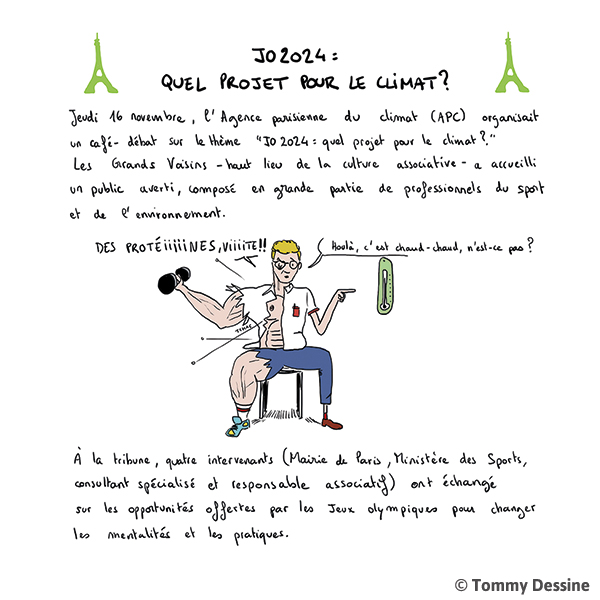 JO 2024 :
QUEL PROJET POUR LE CLIMAT ?
Jeudi 16 novembre, l'Agence parisienne du climat (APC) organisait
un café-débat sur le thème "JO 2024 : quel projet pour le climat ?."
Les Grands Voisins - haut lieu de la culture associative - a accueilli
un public averti, composé en grande partie de professionnels du sport
et de l'environnement.
DES PROTÉiiiiiNES, Viiiite !!
Houlà, c'est chaud-chaud, n'est-ce pas ?
À la tribune, quatre intervenants (Mairie de Paris, Ministère des Sports,
consultant spécialisé et responsable associatif) ont échangé
sur les opportunités offertes par les Jeux olympiques pour changer
les mentalités et les pratiques.
© Tommy Dessine